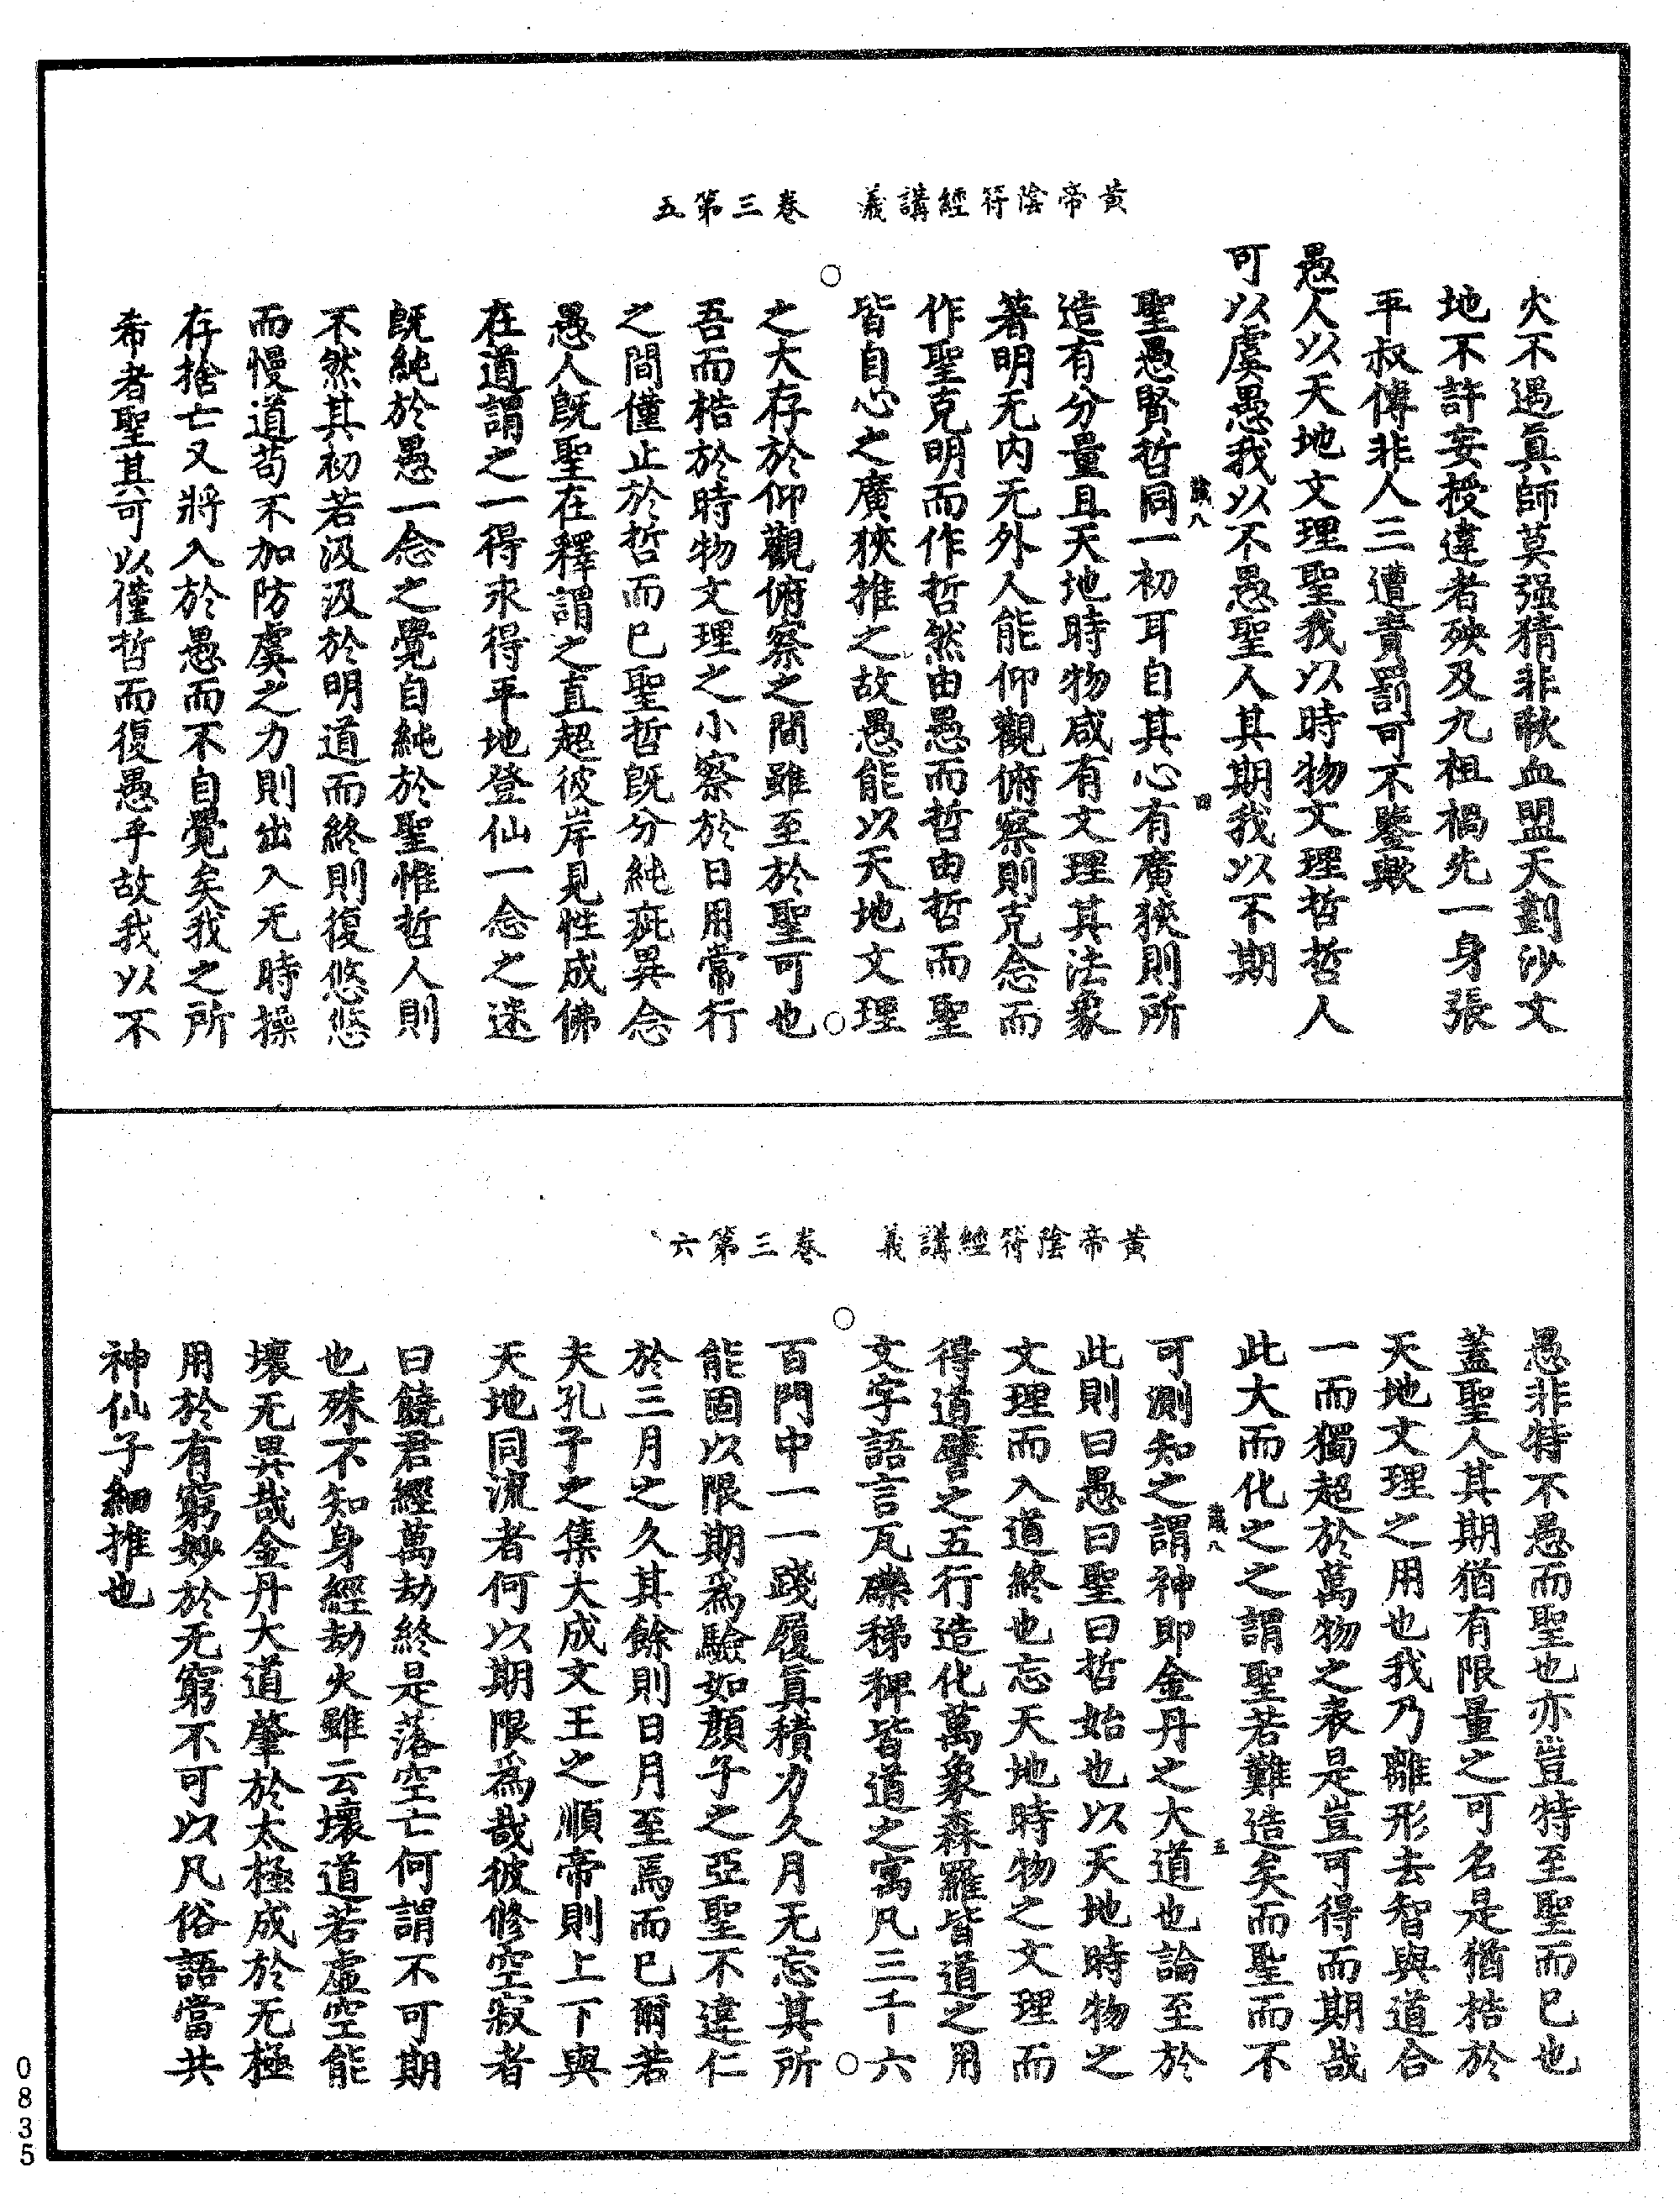 黃帝陰符經講義　卷三第五
火不遇真師莫强猜非歃血盟天劃沙文
地不許妄授違者殃及九祖禍先一身張
平叔傳非人三遭責罰可不鑒歟
愚人以天地文理聖我以時物文理哲哲人
可以虞愚我以不愚聖人其期我以不期
聖愚賢哲同一初耳自其心有廣狹則所
造有分量且天地時物咸有文理其法象
著明无内无外人能仰觀俯察則克念而
作聖克明而作哲然由愚而哲由哲而聖
皆自心之廣狹推之故愚能以天地文理
之大存於仰觀俯察之間雖至於聖可也
吾而梏於時物文理之小察於日用常行
之間僅止於哲而已聖哲既分純疵異念
愚人既聖在釋謂之直超彼岸見性成佛
在道謂之一得永得平地登仙一念之迷
既純於愚一念之覺自純於聖惟哲人則
不然其初若汲汲於明道而終則復悠悠
而慢道苟不加防虞之力則出入无時操
存捨亡又將入於愚而不自覺矣我之所
希者聖其可以僅哲而復愚乎故我以不
黃帝陰符經講義　卷三第六
愚非特不愚而聖也亦豈特至聖而已也
蓋聖人其期猶有限量之可名是猶梏於
天地文理之用也我乃離形去智與道合
一而獨超於萬物之表是豈可得而期哉
此大而化之之謂聖若難造矣而聖而不
可測知之謂神即金丹之大道也論至於
此則曰愚曰聖曰哲始也以天地時物之
文理而入道終也忘天地時物之文理而
得道譬之五行造化萬象森羅皆道之用
文字語言瓦礫稊稗皆道之寓凡三千六
百門中一一踐履真積力久月无忘其所
能固以限期為驗如顏子之亞聖不違仁
於三月之久其餘則日月至焉而已爾若
夫孔子之集大成文王之順帝則上下與
天地同流者何以期限為哉彼修空寂者
曰饒君經萬劫終是落空亡何謂不可期
也殊不知身經劫火雖云壞道若虛空能
壞无異哉金丹大道肇於太極成於无極
用於有窮妙於无窮不可以凡俗語當共
神仙子細推也
0835